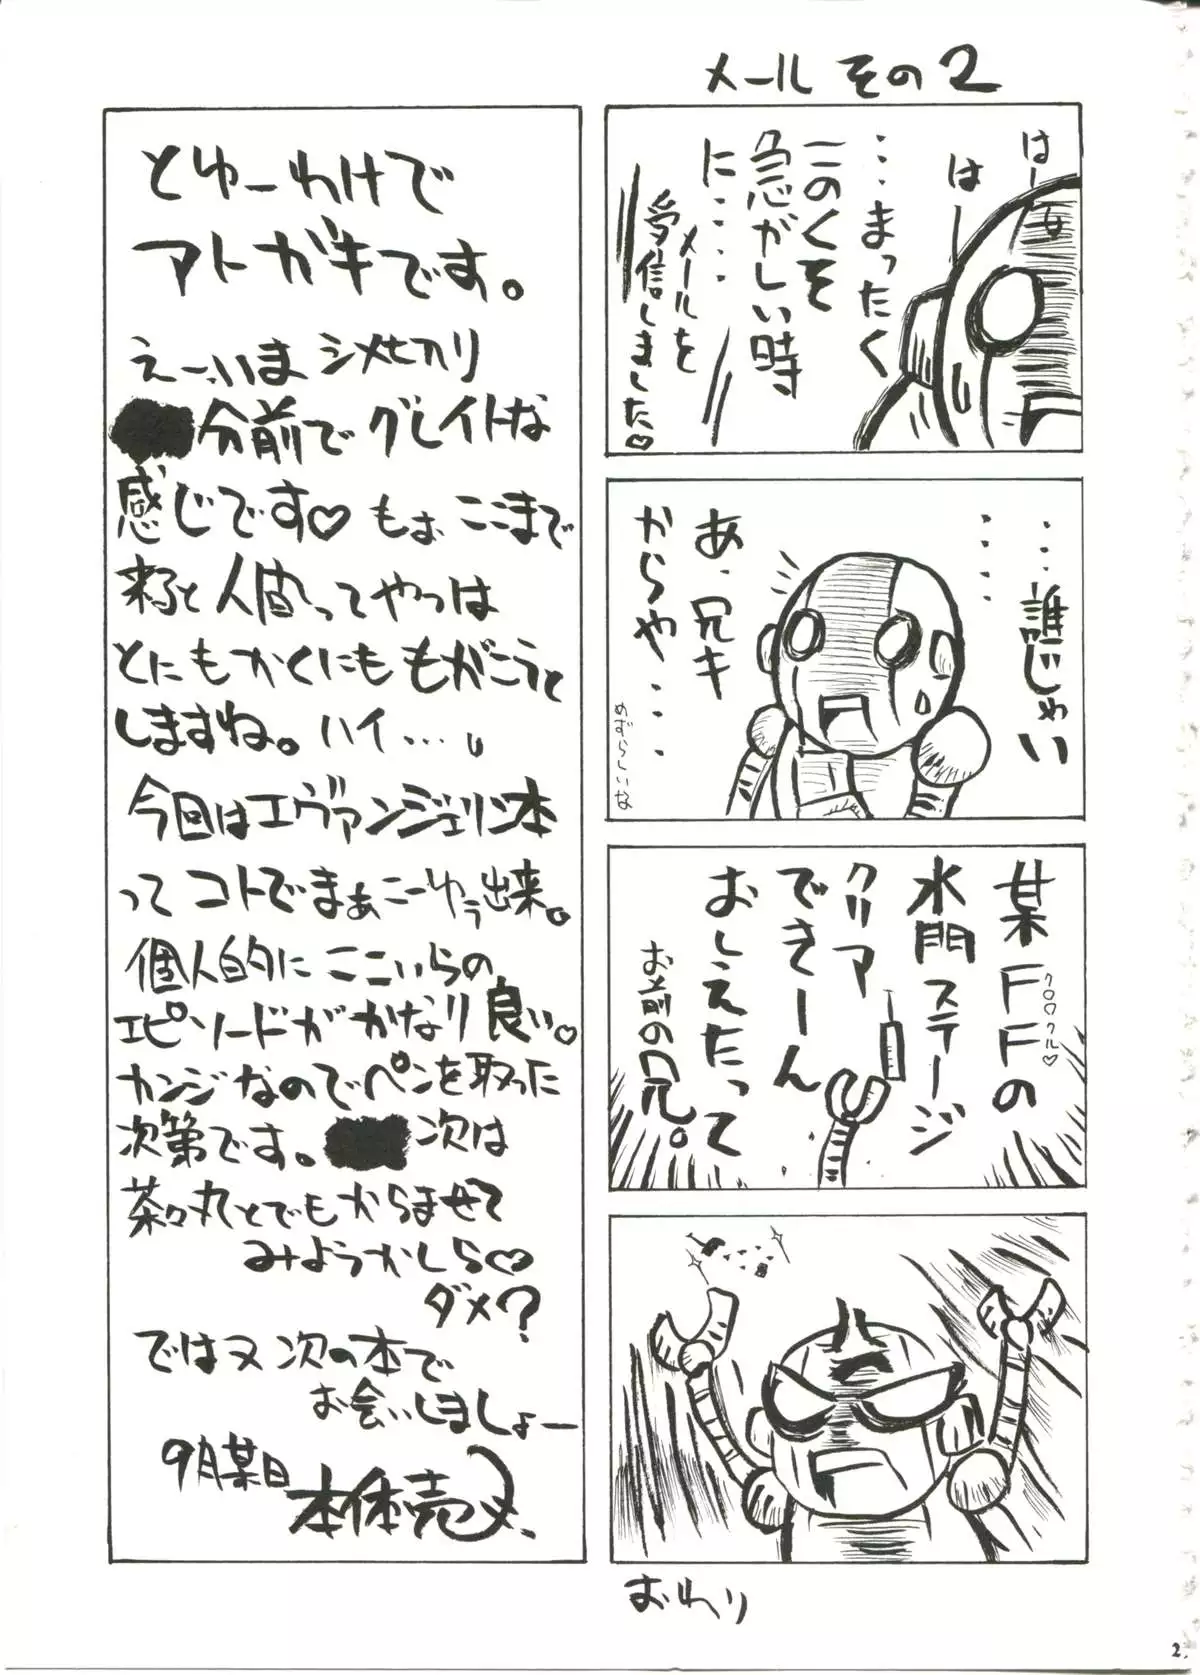 メール その2
はー
はー
…まったく
このくそ
急がしい時
に‥‥
メールを
受信しました♡
‥‥‥
…誰じゃい
あ、兄キ
からや‥‥
めずらしいな
某FFの
クロクル♡
水門ステージ
クリア
できーん
おしえたって
お前の兄。
おわり
とゆーわけで
アトガキです。
えーいま シメ切リ
分前で グレイトな
感じです♡ もぉ ここまで
来ると 人間ってやつは
とにもかくにも もがこうと
しますね。ハイ…。
今回はエヴァンジェリン本
って コトで まぁこーゆう出来。
個人的に ここいらの
エピソードが かなり 良い。
カンジなので ペンを取った
次第です。 次は
茶々丸とでも からませて
みようかしら♡
ダメ?
ではヌ 次の本で
お会いしましょー
9月某日
本体売
2